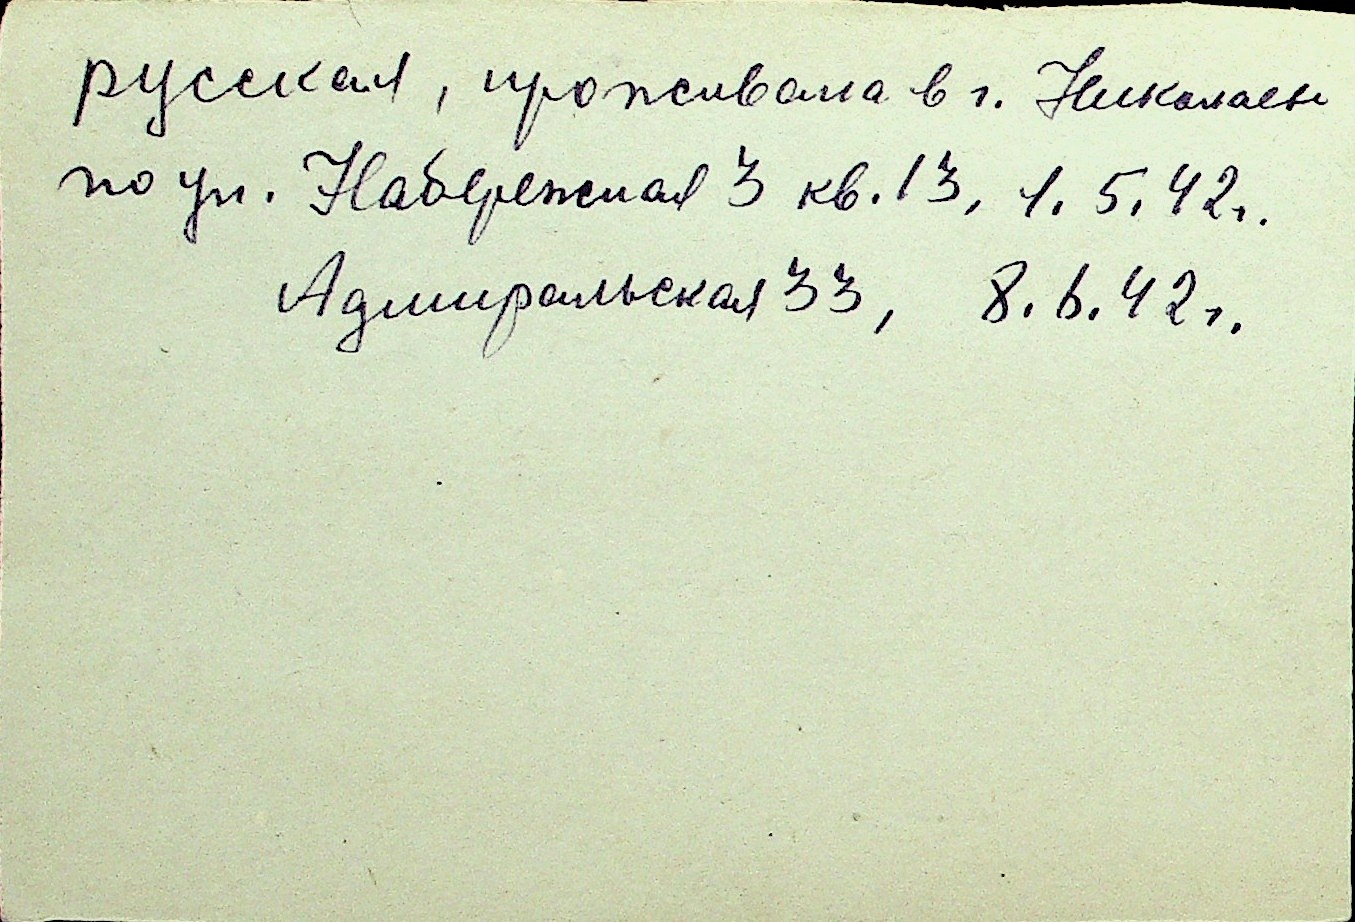 русская, проживала в г. Николаеве
по ул. Набережная 3 кв. 13, 1. 5. 42 г.
Адмиральская 33, 8. 6. 42 г.